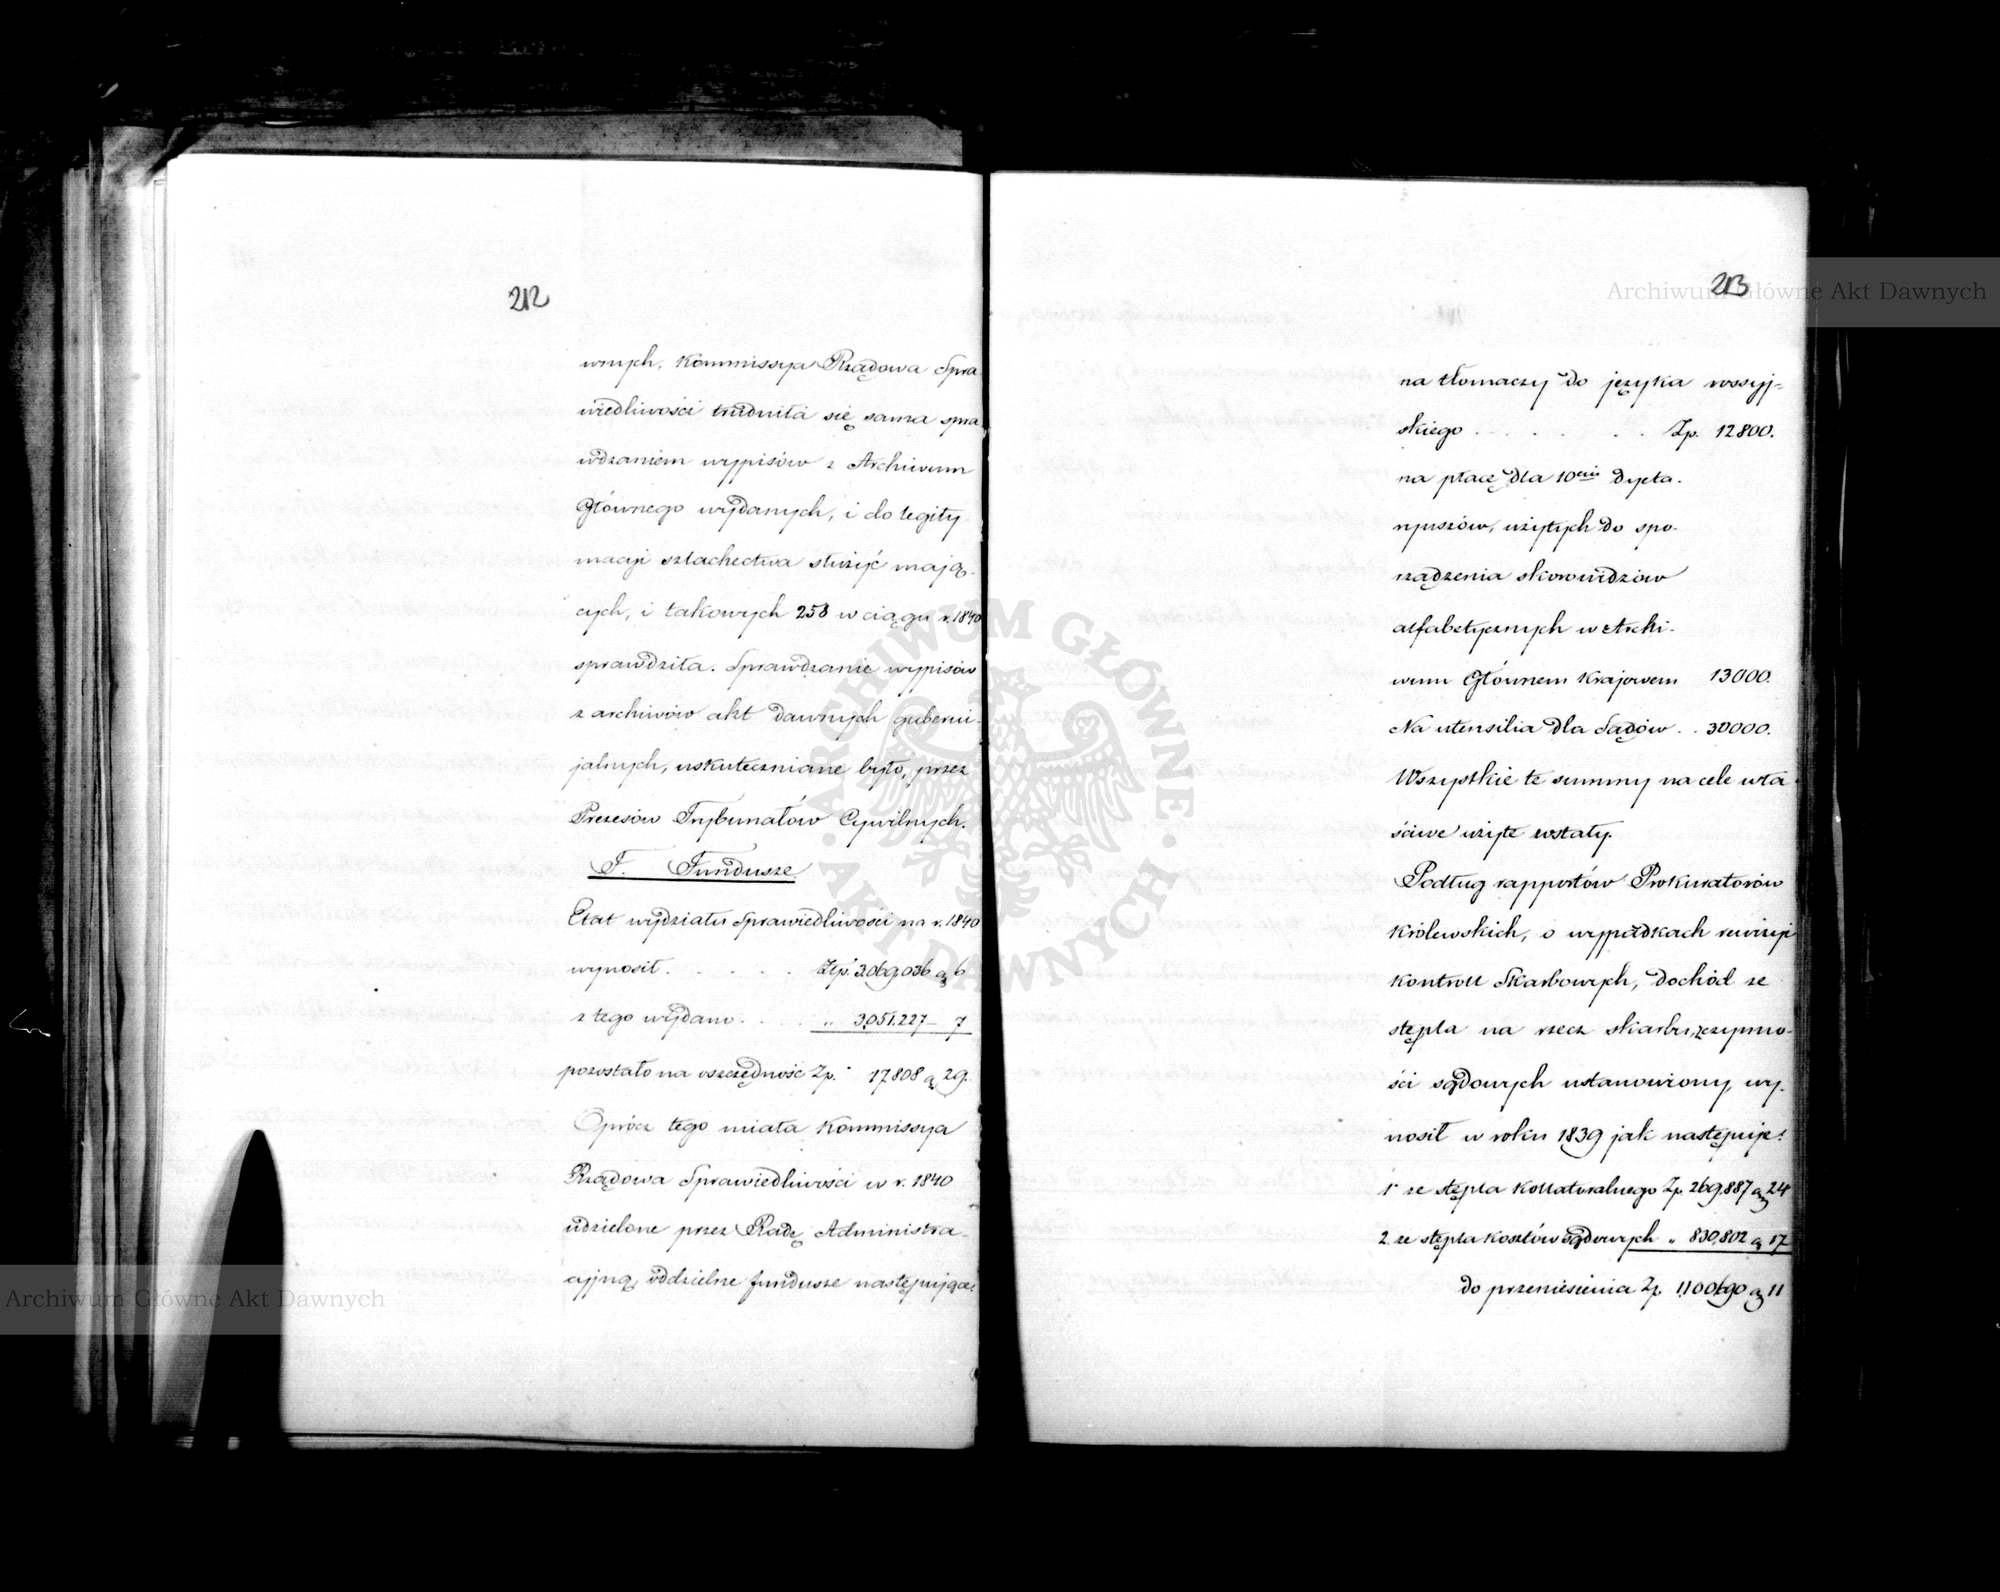 212
wnych, Kommissya Rządowa Spra
wiedliwości trudniła się sama spra
wdzaniem wypisów z Archiwum
Głównego wydanych, i do legity
macyi szlachectwa służyć mają-
cych, i takowych 258 w ciągu r. 1840
sprawdziła. Sprawdzanie wypisów
z archiwów akt dawnych guberni-
jalnych, uskuteczniane było, przez
Prezesów Trybunałów Cywilnych.
F. Fundusze.
Etat wydziału Sprawiedliwości na r. 1840
wynosił . . . . . Złp. 3.069.036 g 6
z tego wydano . . . . „ 3,051.227 — 7
pozostało na oszczędność Zp. 17.808 g 29.
Oprócz tego miała Kommissya
Rządowa Sprawiedliwości w r. 1840
udzielone przez Radę Administra-
cyjną, oddzielne fundusze następujące:
213
na tłomaczy do języka rossyj=
skiego . . . . . . Zp. 12800.
na płacę dla 10ciu dyeta-
ryuszów, użytych do spo-
rządzenia skorowidzów
alfabetycznych w Archi-
wum Głównem Krajowem 13000.
Na utensilia dla Sądów . . 30000.
Wszystkie te summy na cele wła
ściwe użyte zostały.
Podług rapportów Prokuratorów
Królewskich, o wypadkach rewizyi
kontroll Skarbowych, dochód ze
stępla na rzecz skarbu, z czynno-
ści sądowych ustanowiony, wy-
nosił w roku 1839 jak następuje:
1. ze stępla kollateralnego Zp. 269.887 g 24
2. ze stępla kosztów sądowych „ 830.802 g 17
do przeniesienia Zp. 1,100,690 g 11
Archiwum Główne Akt Dawnych
ARCHIWUM GŁÓWNE • AKT DAWNYCH •
Archiwum Główne Akt Dawnych